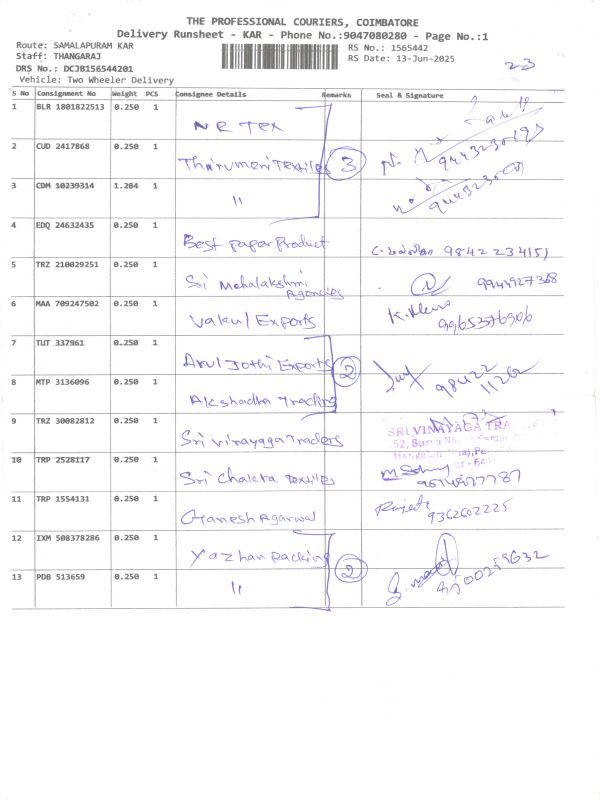 THE PROFESSIONAL COURIERS, COIMBATORE
Delivery Runsheet - KAR - Phone No.:9047080280 - Page No.:1
Route: SAMALAPURAM KAR
RS No.: 1565442
Staff: THANGARAJ
RS Date: 13-Jun-2025
DRS No.: DCJB156544201
23
Vehicle: Two Wheeler Delivery
S No Consignment No Weight PCS Consignee Details Remarks Seal & Signature
1 BLR 1801822513 0.250 1 NR Tex
2 CUD 2417868 0.250 1 Thirumeni Textiles 3
3 CDM 10239314 1.284 1 "
4 EDQ 24632435 0.250 1 Best paper Product 9842234151
5 TRZ 210029251 0.250 1 Sri Mahalakshmi Agencies 9944927368
6 MAA 709247502 0.250 1 Vakul Exports 9965376906
7 TUT 337961 0.250 1 Arul Jothi Exports 2
8 MTP 3136096 0.250 1 Akshadha Trading 98422 11262
9 TRZ 30082812 0.250 1 Sri vinayagga Traders SRI VINAYAGA TRA
10 TRP 2528117 0.250 1 Sri Chakra Textiles
11 TRP 1554131 0.250 1 Ganesh Agarwal 9362602225
12 IXM 508378286 0.250 1 Yazhan packing 2
13 PDB 513659 0.250 1 "